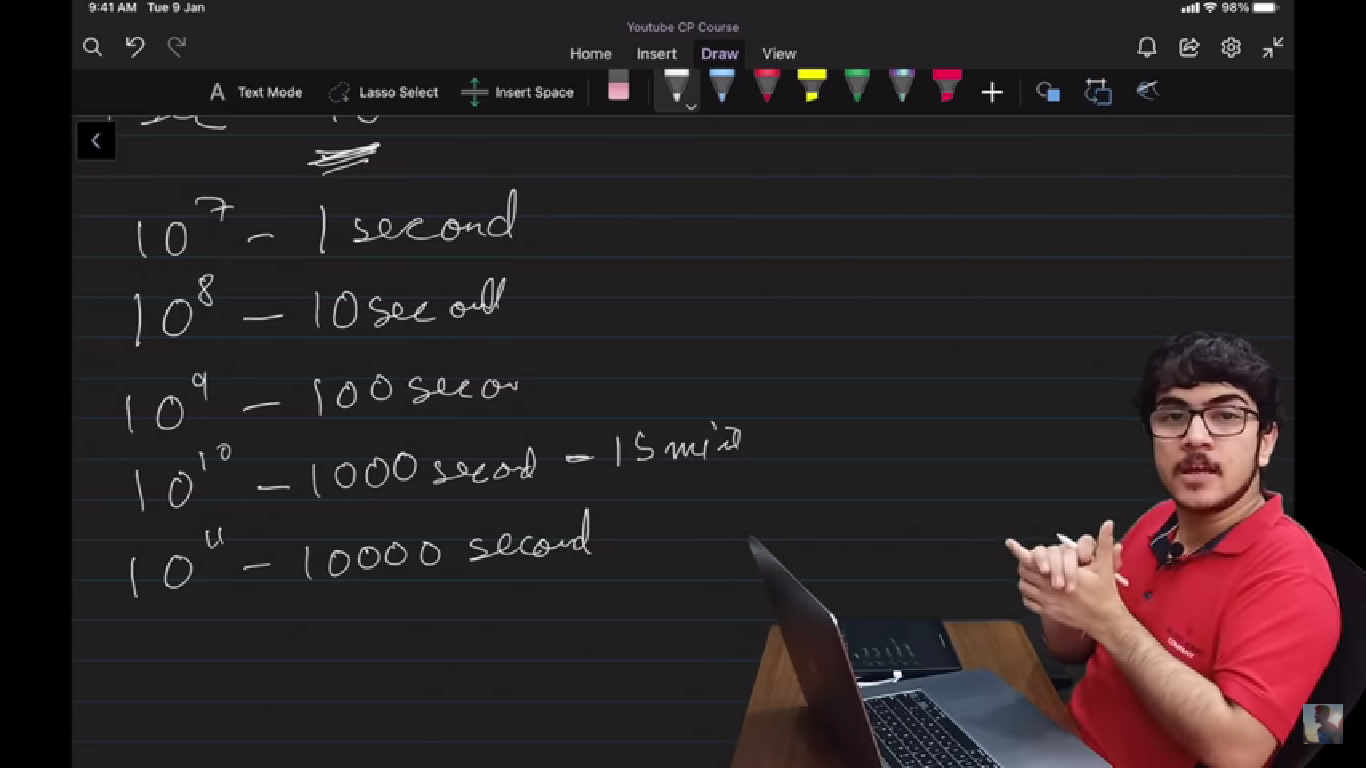 9:41 AM Tue 9 Jan
98%
Youtube CP Course
Home Insert Draw View
Text Mode Lasso Select Insert Space
10⁷ - 1 second
10⁸ - 10 second
10⁹ - 100 secon
10¹⁰ - 1000 second - 15 min
10¹¹ - 10000 second
COMPANY